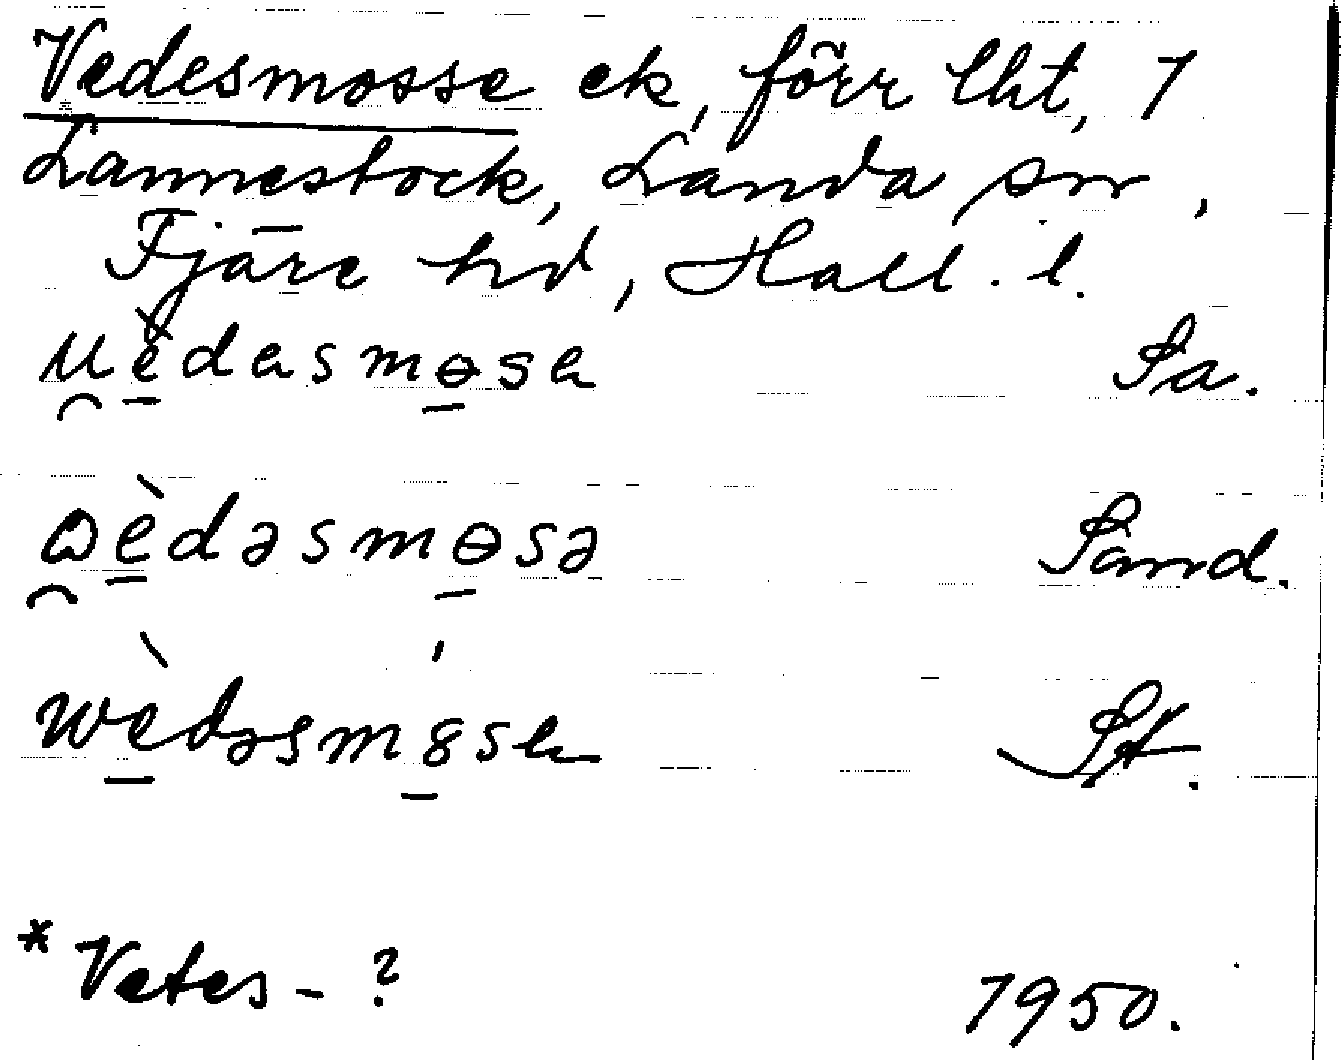 Vedesmosse ek, förr lht, 1
Lannestock, Landa sn,
Fjäre hd, Hall. l.
u̯èdasmɵsa Sa.
ɷ̯èdəsmɵsə Sand.
wèdəsm8sa St.
* Vetes- ?
1950.